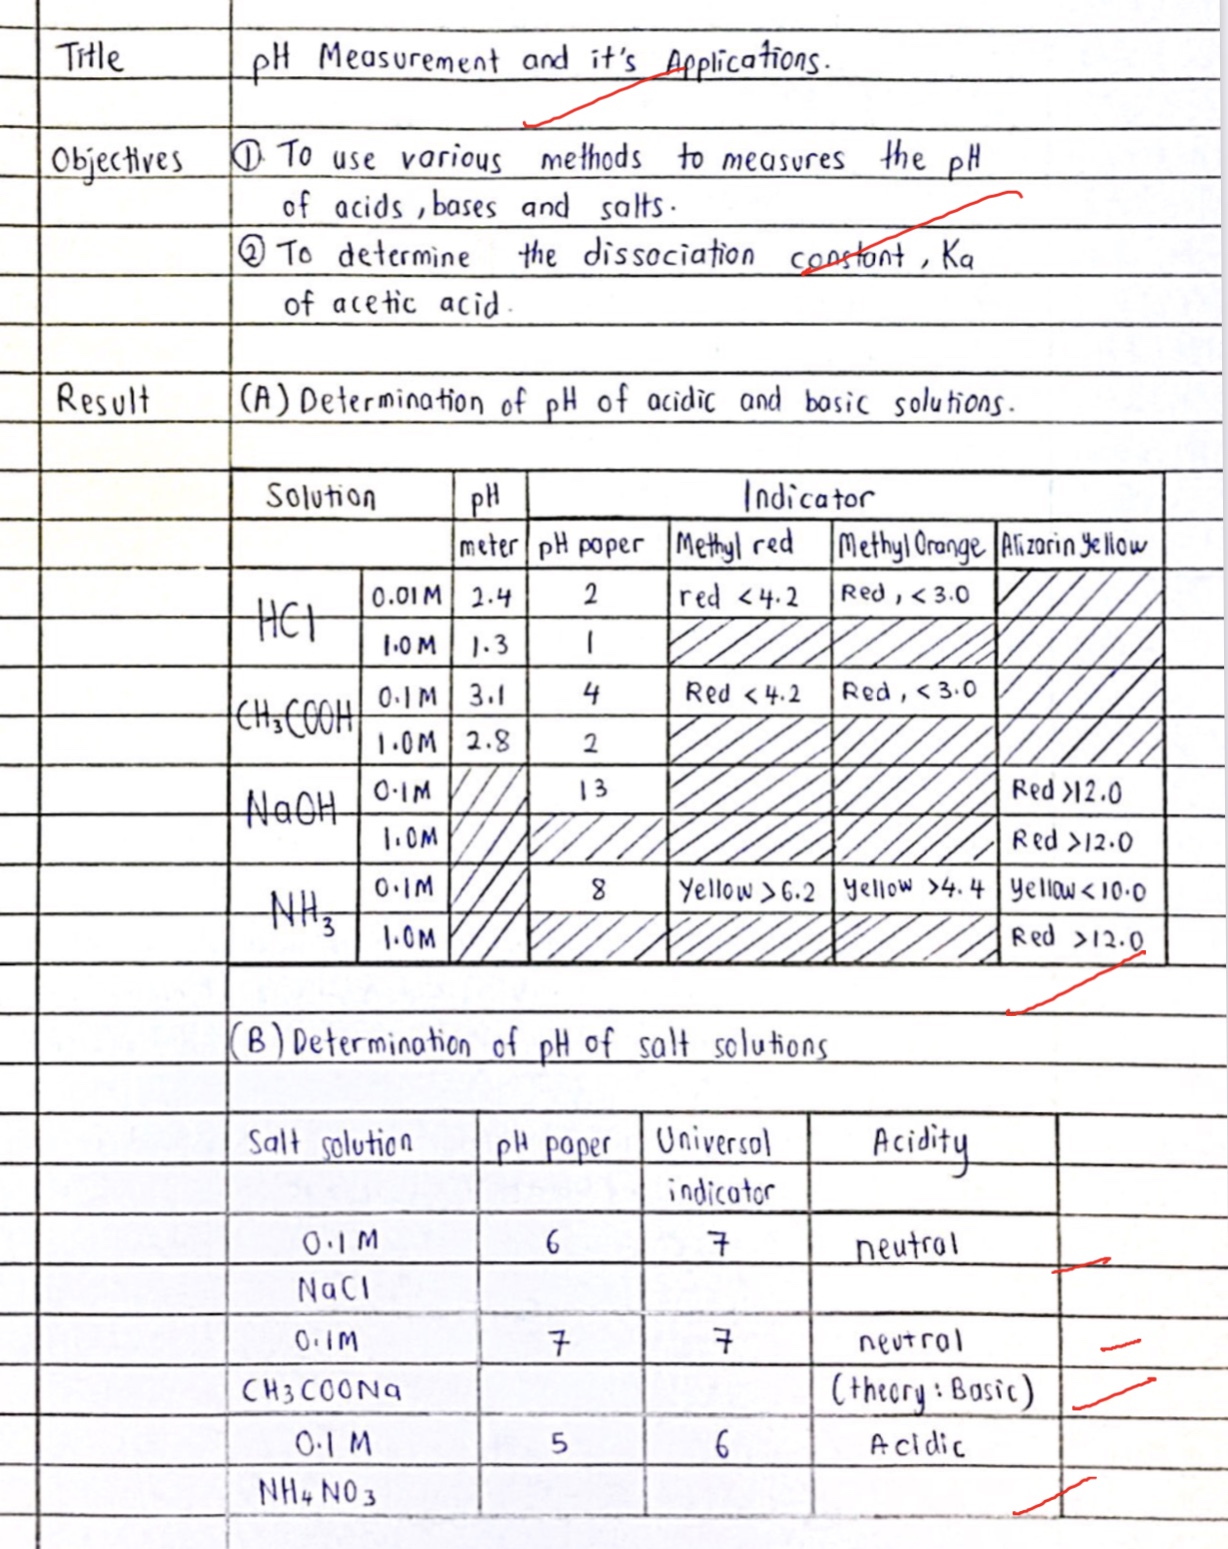 Title pH Measurement and it's Applications.
Objectives ① To use various methods to measures the pH
of acids, bases and salts.
② To determine the dissociation constant, Ka
of acetic acid.
Result (A) Determination of pH of acidic and basic solutions.
Solution pH Indicator
meter pH paper Methyl red Methyl Orange Alizarin Yellow
HCl 0.01M 2.4 2 red <4.2 Red, <3.0
1.0M 1.3 1
CH3COOH 0.1M 3.1 4 Red <4.2 Red, <3.0
1.0M 2.8 2
NaOH 0.1M 13 Red >12.0
1.0M Red >12.0
NH3 0.1M 8 Yellow >6.2 Yellow >4.4 Yellow <10.0
1.0M Red >12.0
(B) Determination of pH of salt solutions
Salt solution pH paper Universal Acidity
indicator
0.1M 6 7 neutral
NaCl
0.1M 7 7 neutral
CH3COONa (theory: Basic)
0.1M 5 6 Acidic
NH4NO3